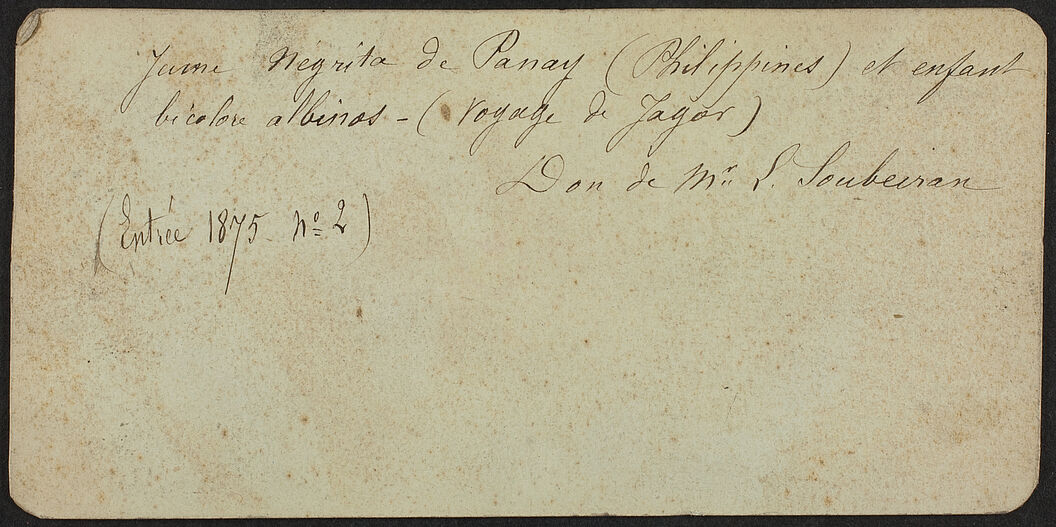 Jeune Négrita de Panay (Philippines) et enfant
bicolore albinos - (Voyage de Jagor)
Don de Mr. L. Soubeiran
(Entrée 1875 No 2)